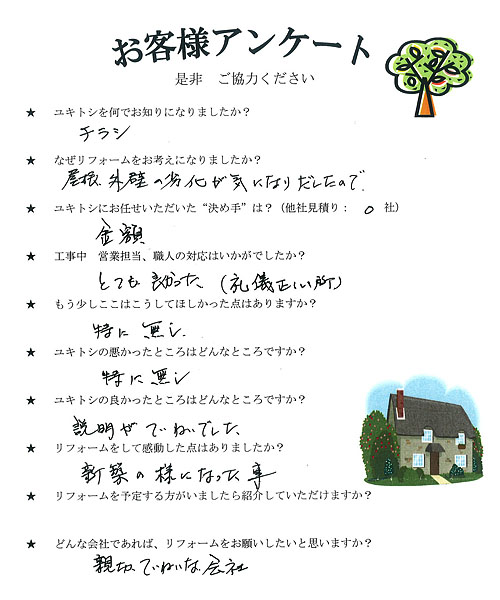 お客様アンケート
是非 ご協力ください
★ ユキトシを何でお知りになりましたか？
チラシ
★ なぜリフォームをお考えになりましたか？
屋根、外壁の劣化が気になりだしたので。
★ ユキトシにお任せいただいた“決め手”は？（他社見積り： 0 社）
金額
★ 工事中 営業担当、職人の対応はいかがでしたか？
とても良かった。（礼儀正しい所）
★ もう少しここはこうしてほしかった点はありますか？
特に無し
★ ユキトシの悪かったところはどんなところですか？
特に無し
★ ユキトシの良かったところはどんなところですか？
説明がていねいでした
★ リフォームをして感動した点はありましたか？
新築の様になった事
★ リフォームを予定する方がいましたら紹介していただけますか？
★ どんな会社であれば、リフォームをお願いしたいと思いますか？
親切、ていねいな会社